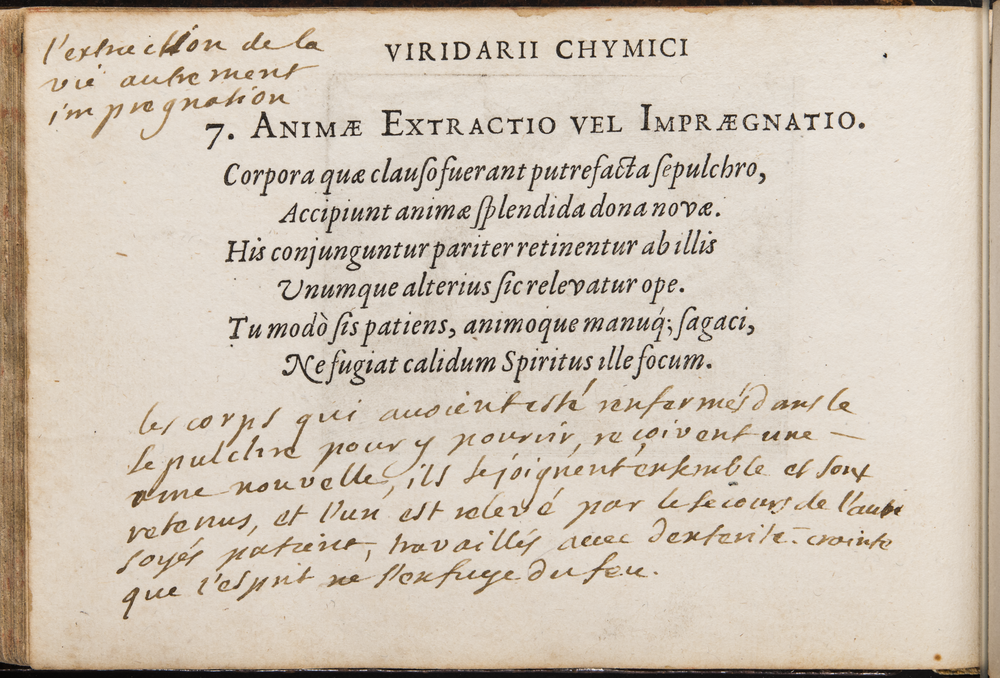 l'extraction de la
vie autrement
impregnation
VIRIDARII CHYMICI
7. ANIMÆ EXTRACTIO VEL IMPRÆGNATIO.
Corpora quæ clauſo fuerant putrefacta ſepulchro,
Accipiunt animæ ſplendida dona novæ.
His conjunguntur pariter retinentur ab illis
Unumque alterius ſic relevatur ope.
Tu modò ſis patiens, animoque manuq́; ſagaci,
Ne fugiat calidum Spiritus ille focum.
les corps qui avoient esté renfermés dans le
sepulchre pour y pourrir, reçoivent une —
ame nouvelle, ils se joignent ensemble et sont
retenus, et l'un est relevé par le secours de l'autre
soyés patient, travaillés avec dexterité crainte
que l'esprit ne s'enfuye du feu.